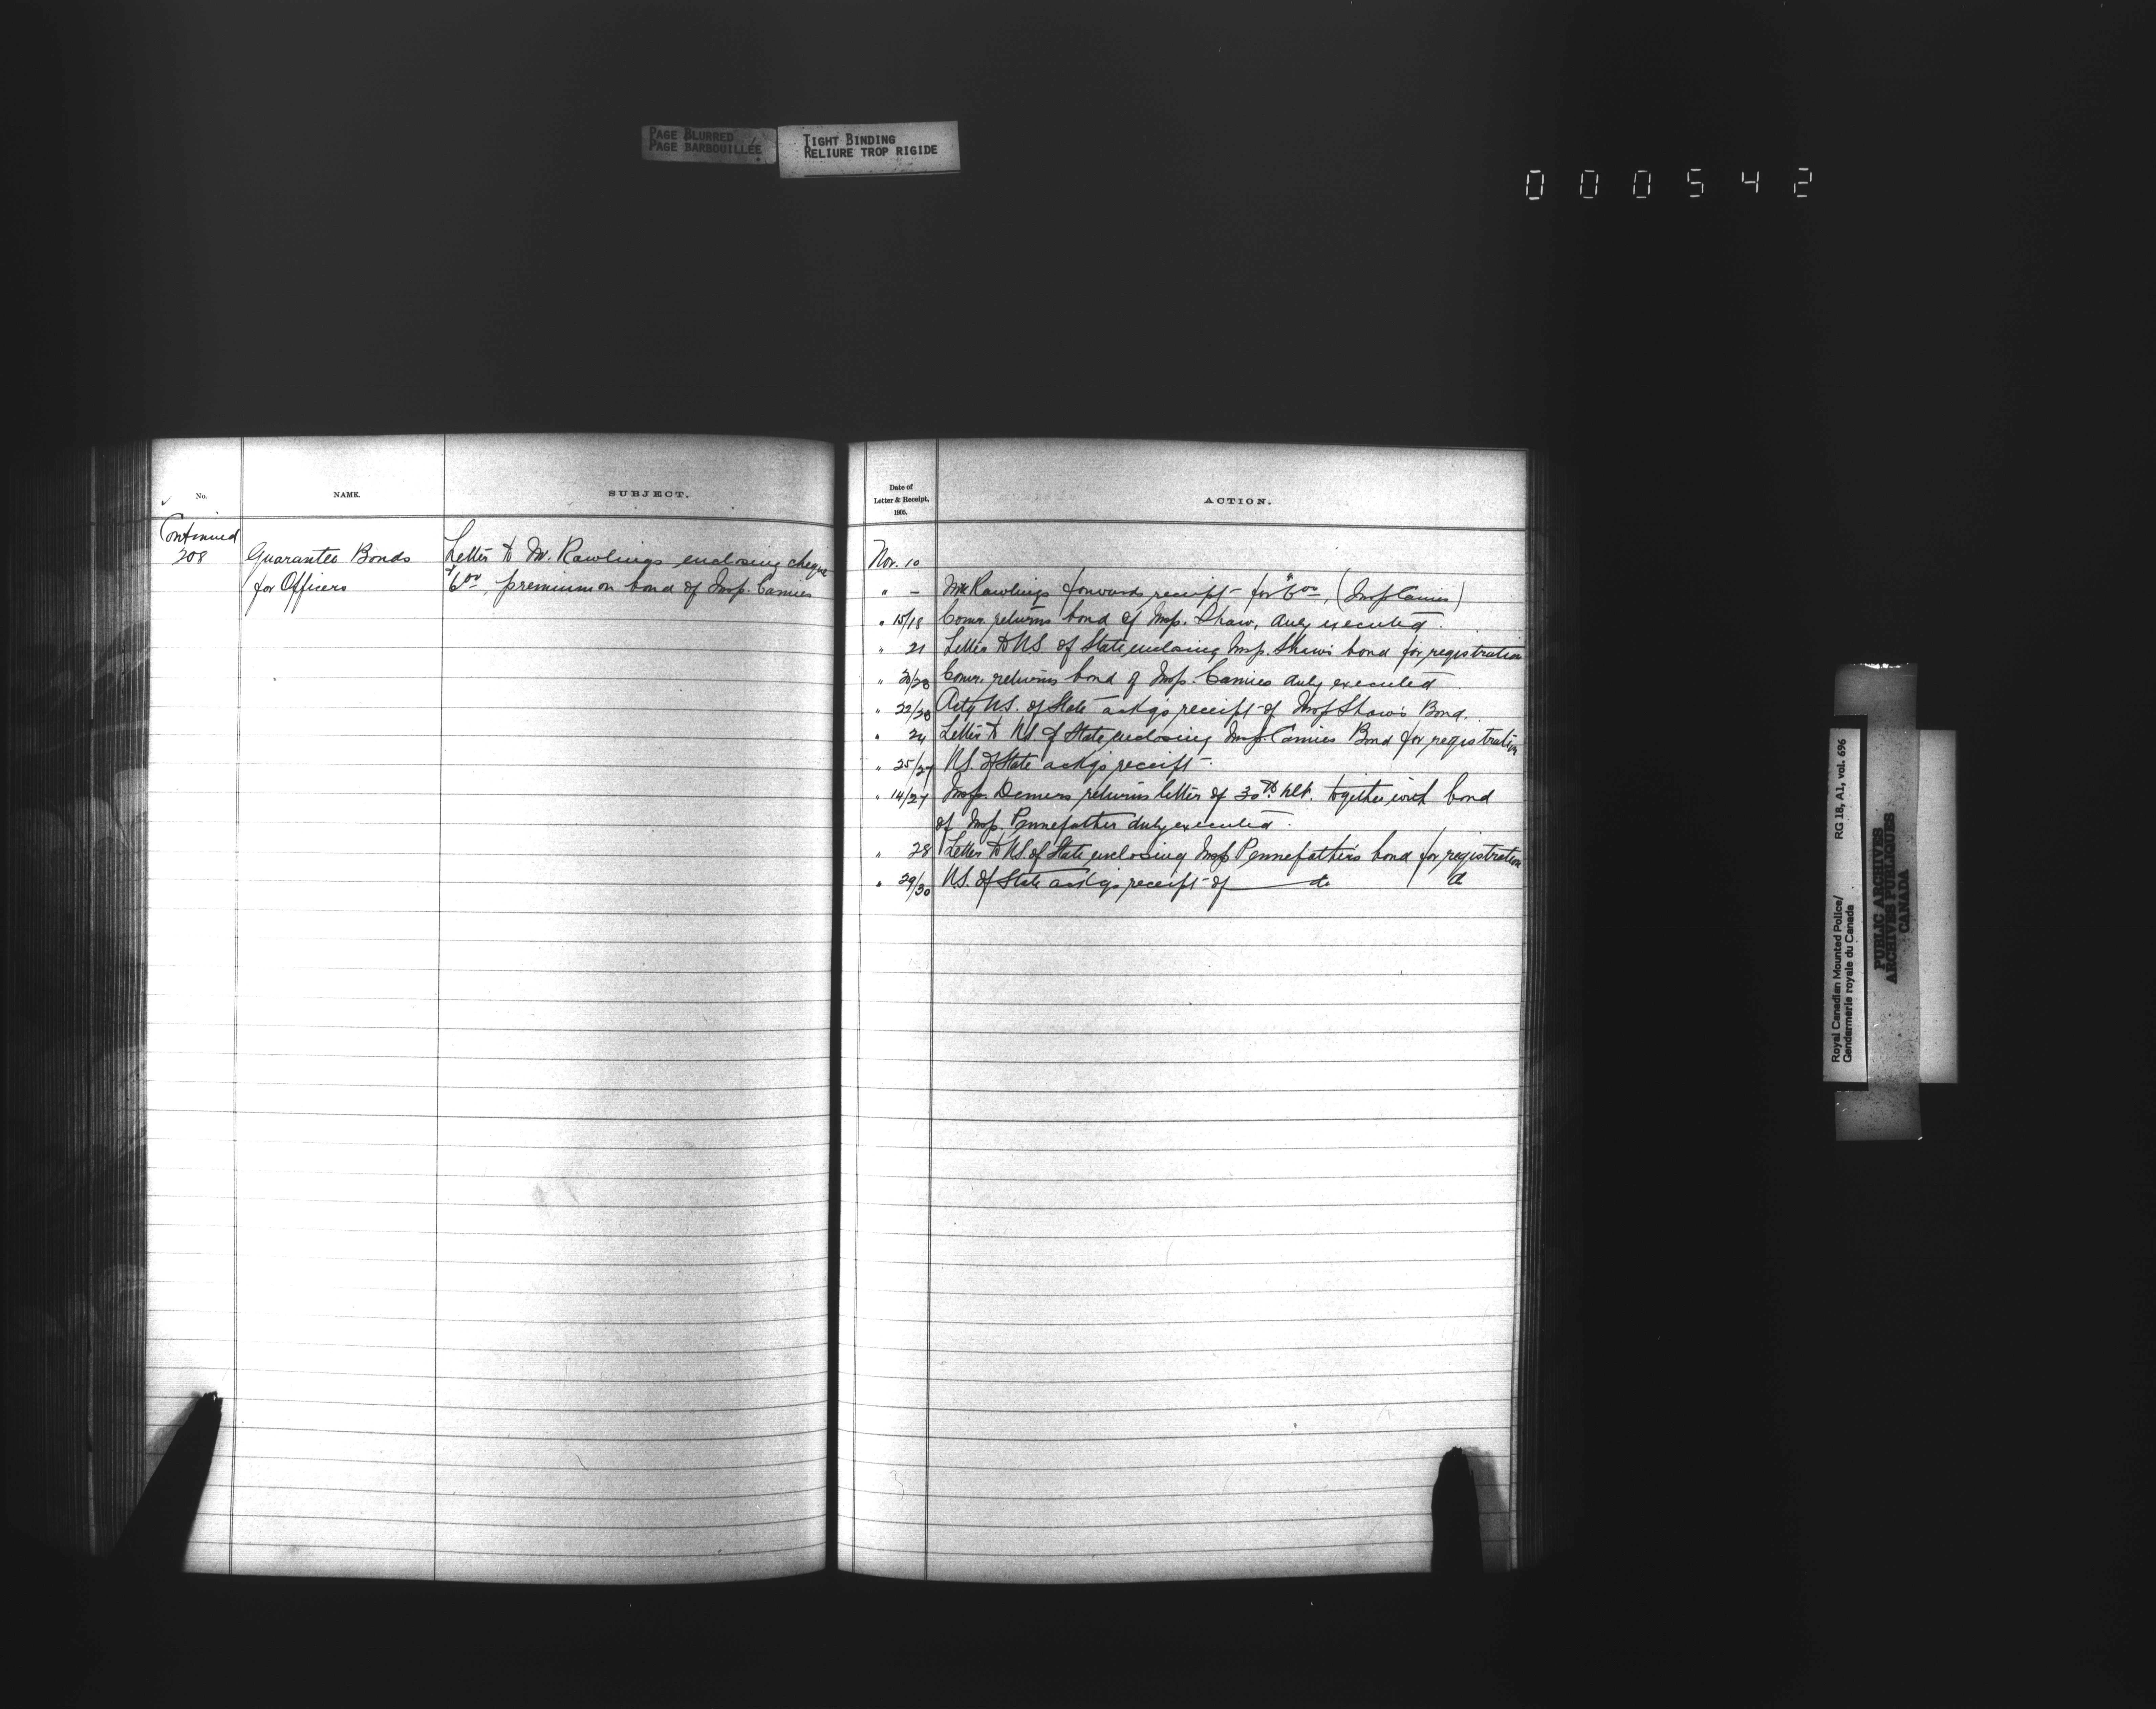 PAGE BLURRED
PAGE BARBOUILLÉE
TIGHT BINDING
RELIURE TROP RIGIDE
000542
No.
NAME.
SUBJECT.
Continued
208
Guarantee Bonds
for Officers
Letter to Mr. Rawlings enclosing cheque
$6.00, premium on bond of Insp. Camies
Date of
Letter & Receipt,
1905.
ACTION.
Nov. 10
" - Mr Rawlings forwards receipt for $6.00, (Insp Camies)
" 15/18 Comr. returns bond of Insp. Shaw, duly executed.
" 21 Letter to U.S. of State, enclosing Insp. Shaw's bond for registration
" 20/23 Comr. returns bond of Insp. Camies duly executed
" 22/23 Actg U.S. of State ackgs receipt of Insp Shaw's Bond.
" 24 Letter to U.S. of State, enclosing Insp. Camies Bond for registration
" 25/27 U.S. of State ackgs receipt.
" 14/27 Insp. Demers returns letter of 30th Ult. together with bond
of Insp. Pennefather duly executed.
" 28 Letter to U.S. of State enclosing Insp Pennefather's bond for registration
" 29/30 U.S. of State ackgs receipt of do do
Royal Canadian Mounted Police/
Gendarmerie royale du Canada
RG 18, A1, vol. 696
PUBLIC ARCHIVES
ARCHIVES PUBLIQUES
CANADA